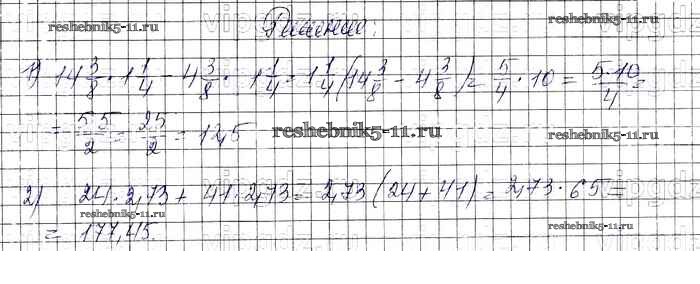 reshebnik5-11.ru Решение: reshebnik5-11.ru
1) 14 3/8 · 1 1/4 - 4 3/8 · 1 1/4 = 1 1/4 (14 3/8 - 4 3/8) = 5/4 · 10 = 5·10/4 =
= 5·5/2 = 25/2 = 12,5 reshebnik5-11.ru
2) 24 · 2,73 + 41 · 2,73 = 2,73 (24 + 41) = 2,73 · 65 =
reshebnik5-11.ru reshebnik5-11.ru
= 177,45.